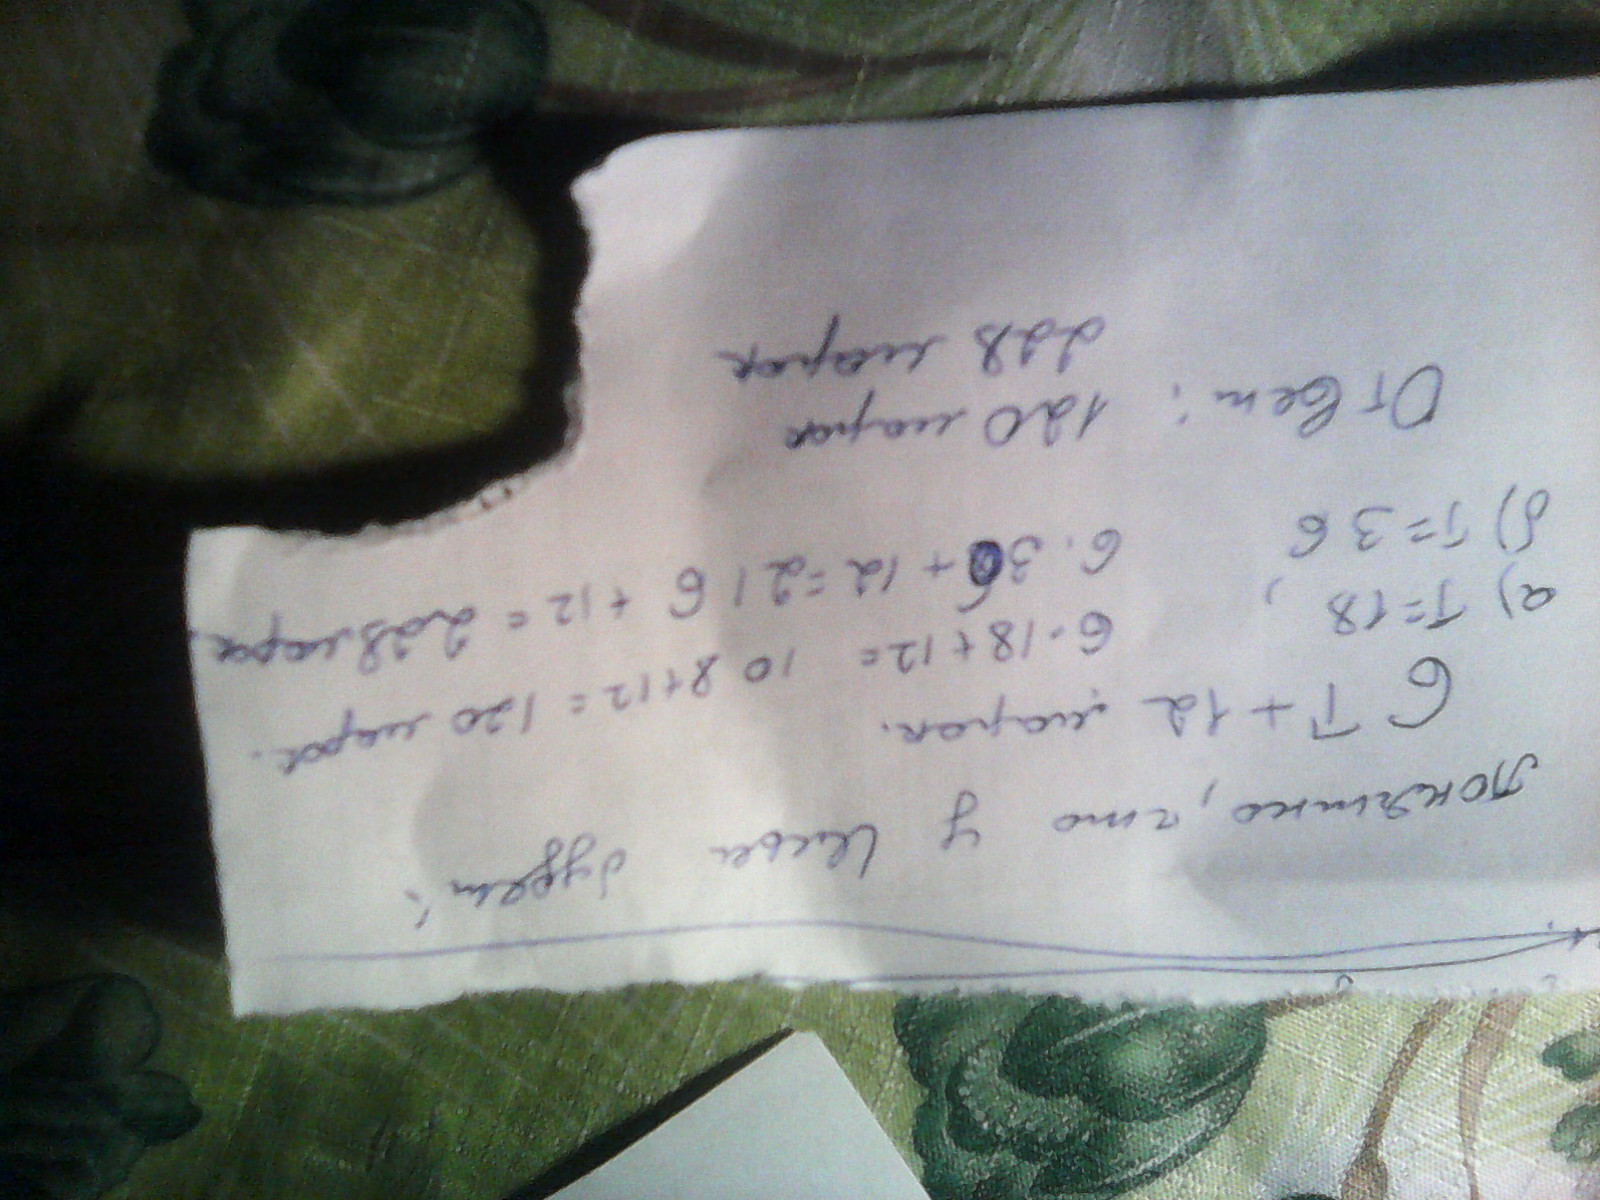 понятно, что у Инвы будет:
6T + 12 марок.
а) T=18, 6·18+12= 108+12= 120 марок.
б) T=36 6·36+12=216+12= 228 марок.
Ответ: 120 марок
228 марок